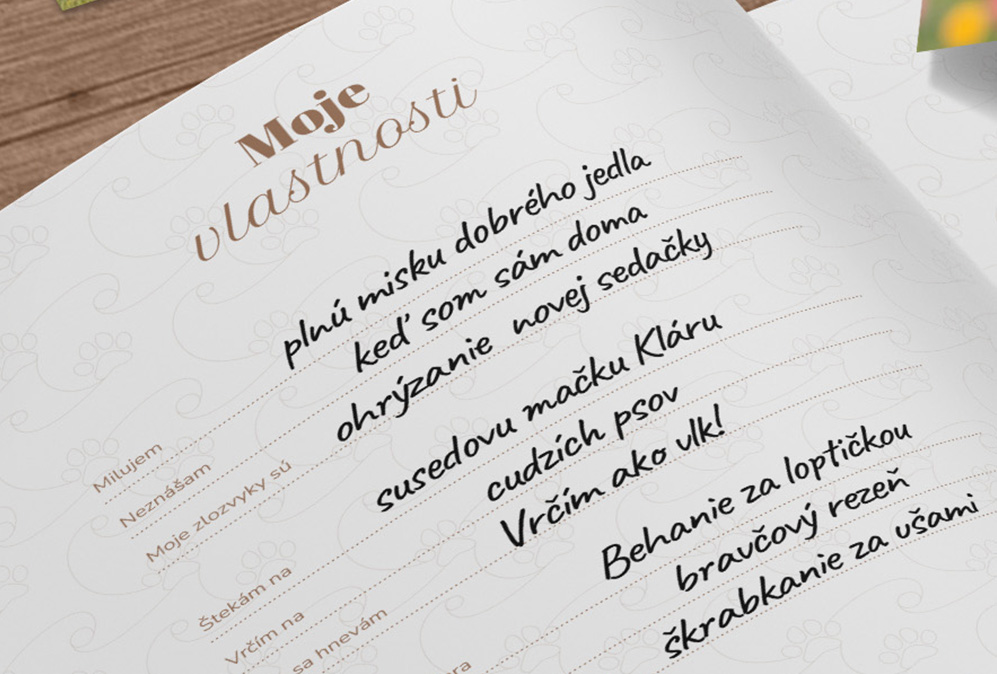 Moje
vlastnosti
Milujem plnú misku dobrého jedla
Neznášam keď som sám doma
Moje zlozvyky sú ohrýzanie novej sedačky
Štekám na susedovu mačku Kláru
Vrčím na cudzích psov
sa hnevám Vrčím ako vlk!
Behanie za loptičkou
bravčový rezeň
škrabkanie za ušami